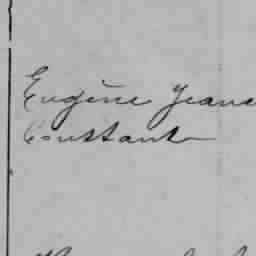 Eugène Jeanne
Constant